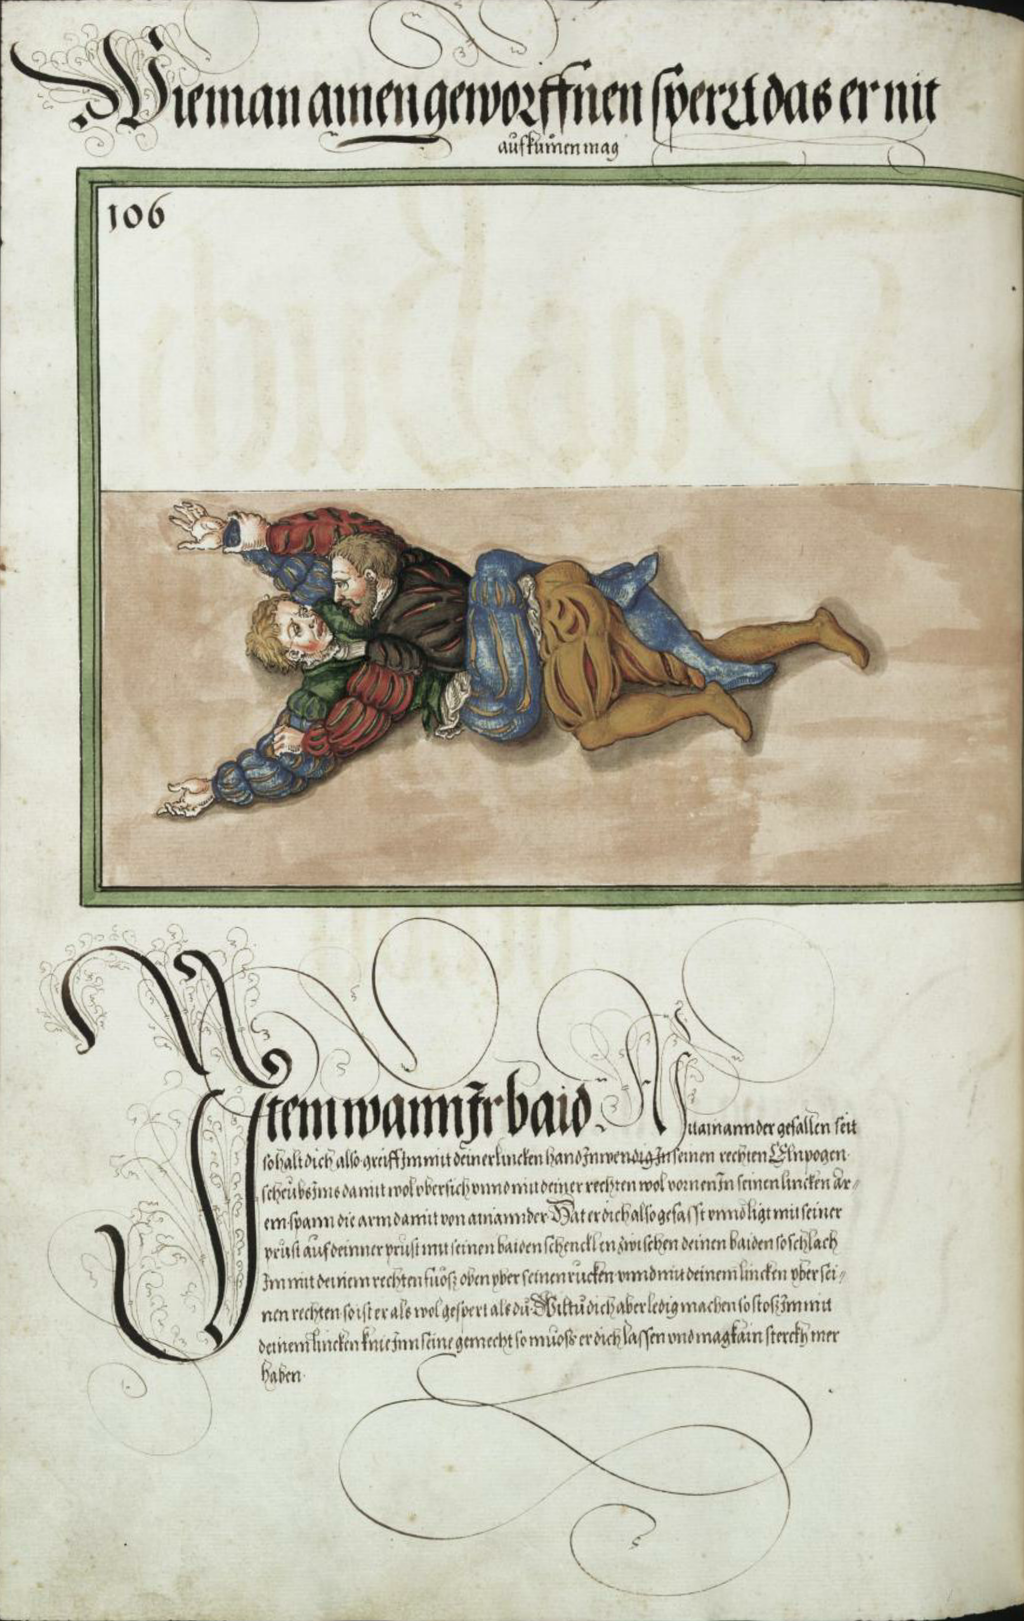 Wie man ainen geworffnen sperrt das er nit
aufkumen mag
106
Item wann Ir baid
auf ainannder gefallen seit
so halt dich also greiff Im mit deiner lincken hand Inwendig In seinen rechten Elnpogen
scheubs Ims damit wol vbersich vnnd mit deiner rechten wol vornen In seinen lincken Ar=
em spann die arm damit von ainannder Hat er dich also gefasst vnnd ligt mit seiner
prust auf deinner prust mit seinen baiden schencklen zwischen deinen baiden so schlach
Im mit deinem rechten fuosz oben vber seinen rucken vnnd mit deinem lincken vber sei=
nen rechten so ist er als wol gesperrt als du Wiltu dich aber ledig machen so stosz Im mit
deinem lincken knie Inn seine gemecht so muoss er dich lassen vnd mag kain sterckh mer
haben